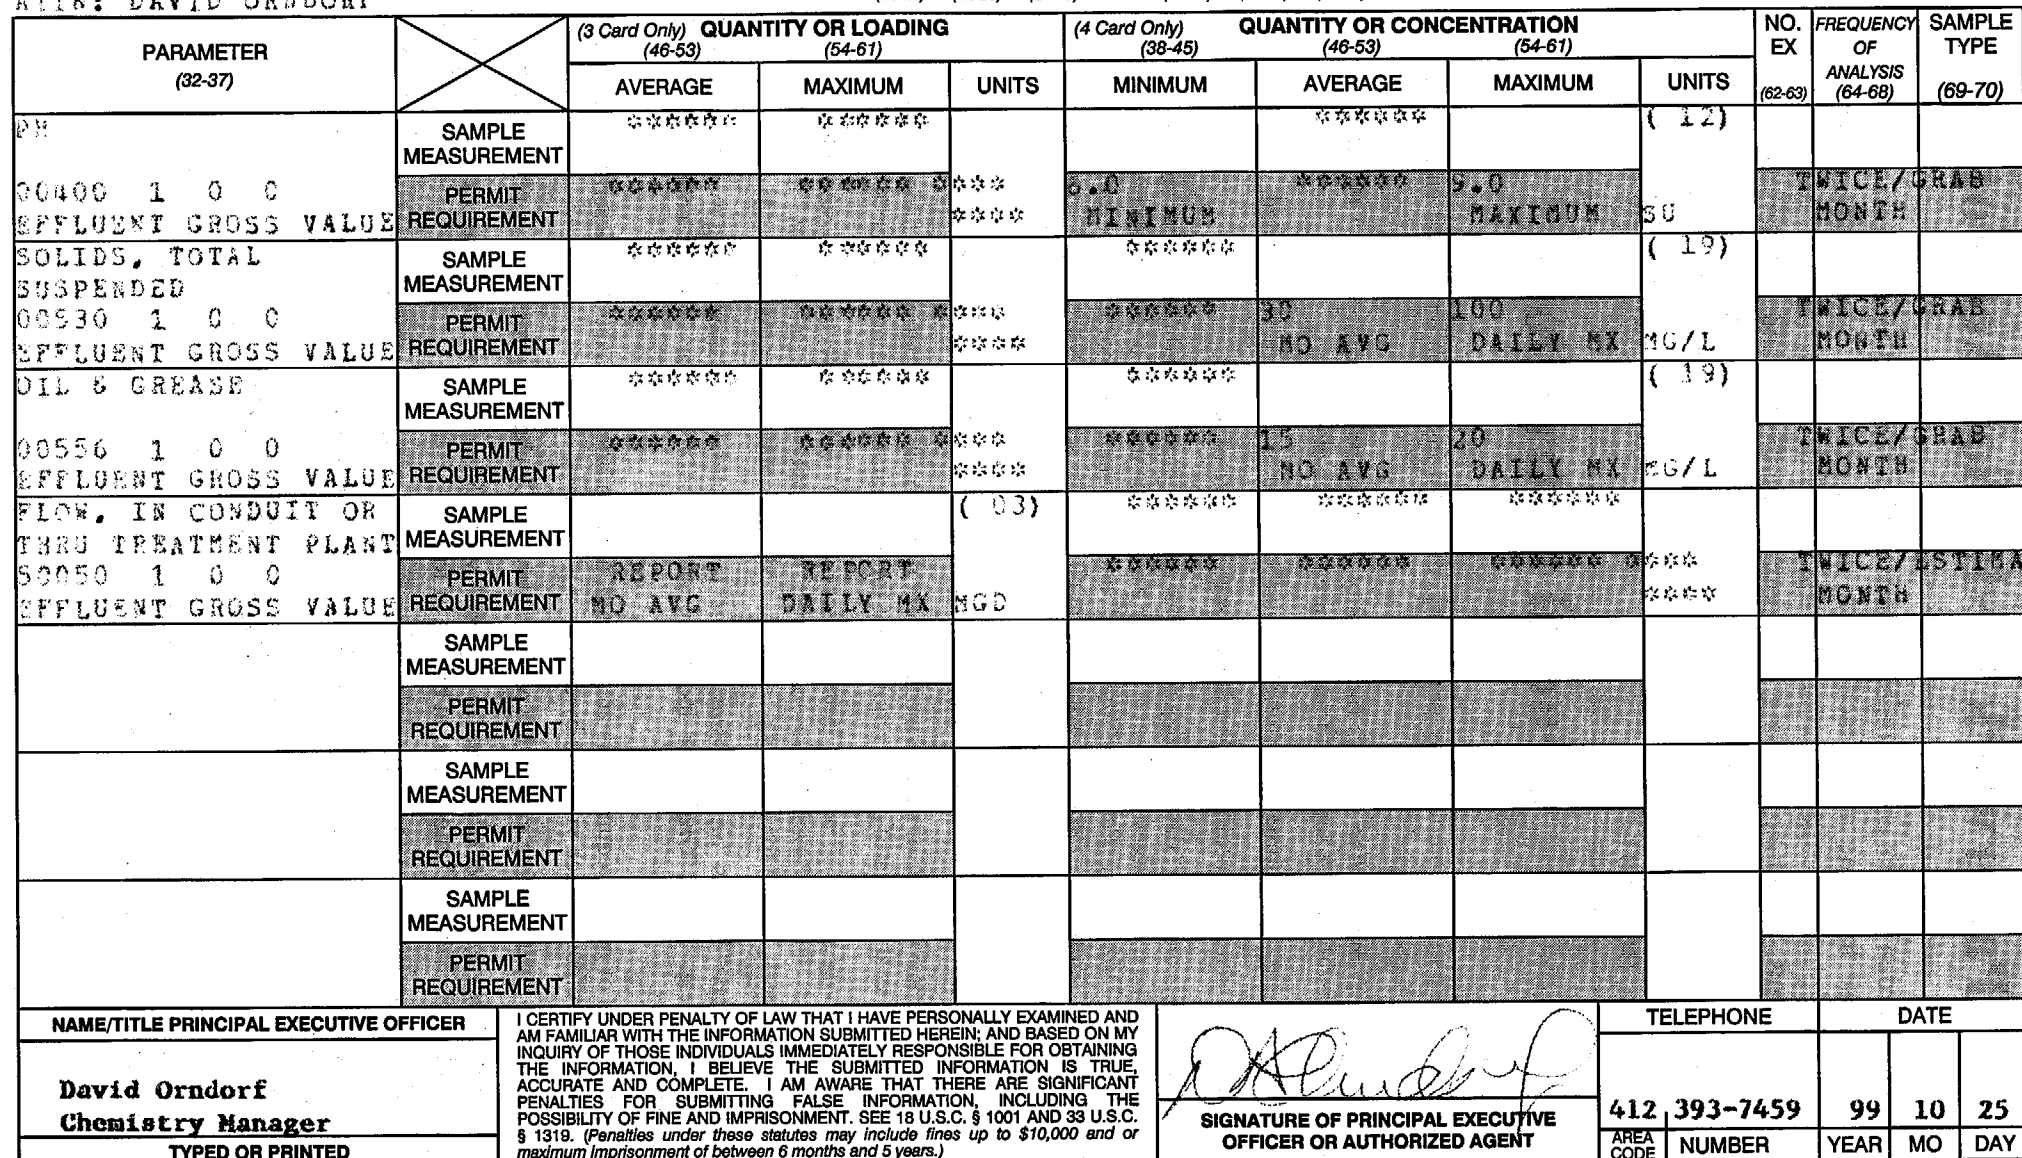 ATTN: DAVID ORNDORF
PARAMETER
(32-37)
(3 Card Only) QUANTITY OR LOADING
(46-53) (54-61)
(4 Card Only) QUANTITY OR CONCENTRATION
(38-45) (46-53) (54-61)
NO. EX
(62-63)
FREQUENCY OF ANALYSIS
(64-68)
SAMPLE TYPE
(69-70)
AVERAGE MAXIMUM UNITS MINIMUM AVERAGE MAXIMUM UNITS
PH
SAMPLE MEASUREMENT
****** ****** ****** ( 12)
00400 1 0 0
EFFLUENT GROSS VALUE
PERMIT REQUIREMENT
****** ****** **** 6.0 ****** 9.0 TWICE/GRAB
**** MINIMUM MAXIMUM SU MONTH
SOLIDS, TOTAL
SUSPENDED
SAMPLE MEASUREMENT
****** ****** ****** ( 19)
00530 1 0 0
EFFLUENT GROSS VALUE
PERMIT REQUIREMENT
****** ****** **** ****** 30 100 TWICE/GRAB
**** MO AVG DAILY MX MG/L MONTH
OIL & GREASE
SAMPLE MEASUREMENT
****** ****** ****** ( 19)
00556 1 0 0
EFFLUENT GROSS VALUE
PERMIT REQUIREMENT
****** ****** **** ****** 15 20 TWICE/GRAB
**** MO AVG DAILY MX MG/L MONTH
FLOW, IN CONDUIT OR
THRU TREATMENT PLANT
SAMPLE MEASUREMENT
( 03) ****** ****** ******
50050 1 0 0
EFFLUENT GROSS VALUE
PERMIT REQUIREMENT
REPORT REPORT ****** ****** ****** **** TWICE/ESTIMA
MO AVG DAILY MX MGD **** MONTH
SAMPLE MEASUREMENT
PERMIT REQUIREMENT
SAMPLE MEASUREMENT
PERMIT REQUIREMENT
SAMPLE MEASUREMENT
PERMIT REQUIREMENT
NAME/TITLE PRINCIPAL EXECUTIVE OFFICER
David Orndorf
Chemistry Manager
TYPED OR PRINTED
I CERTIFY UNDER PENALTY OF LAW THAT I HAVE PERSONALLY EXAMINED AND
AM FAMILIAR WITH THE INFORMATION SUBMITTED HEREIN; AND BASED ON MY
INQUIRY OF THOSE INDIVIDUALS IMMEDIATELY RESPONSIBLE FOR OBTAINING
THE INFORMATION, I BELIEVE THE SUBMITTED INFORMATION IS TRUE,
ACCURATE AND COMPLETE. I AM AWARE THAT THERE ARE SIGNIFICANT
PENALTIES FOR SUBMITTING FALSE INFORMATION, INCLUDING THE
POSSIBILITY OF FINE AND IMPRISONMENT. SEE 18 U.S.C. § 1001 AND 33 U.S.C.
§ 1319. (Penalties under these statutes may include fines up to $10,000 and or
maximum imprisonment of between 6 months and 5 years.)
SIGNATURE OF PRINCIPAL EXECUTIVE
OFFICER OR AUTHORIZED AGENT
TELEPHONE
412 393-7459
AREA CODE NUMBER
DATE
99 10 25
YEAR MO DAY